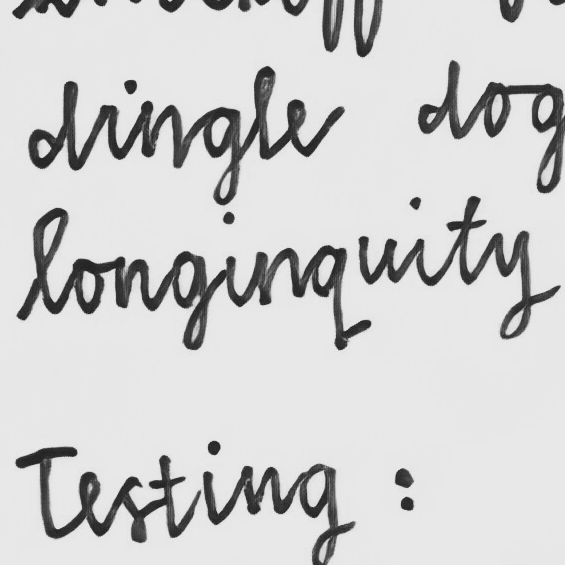 dingle dog
longinquity
Testing :